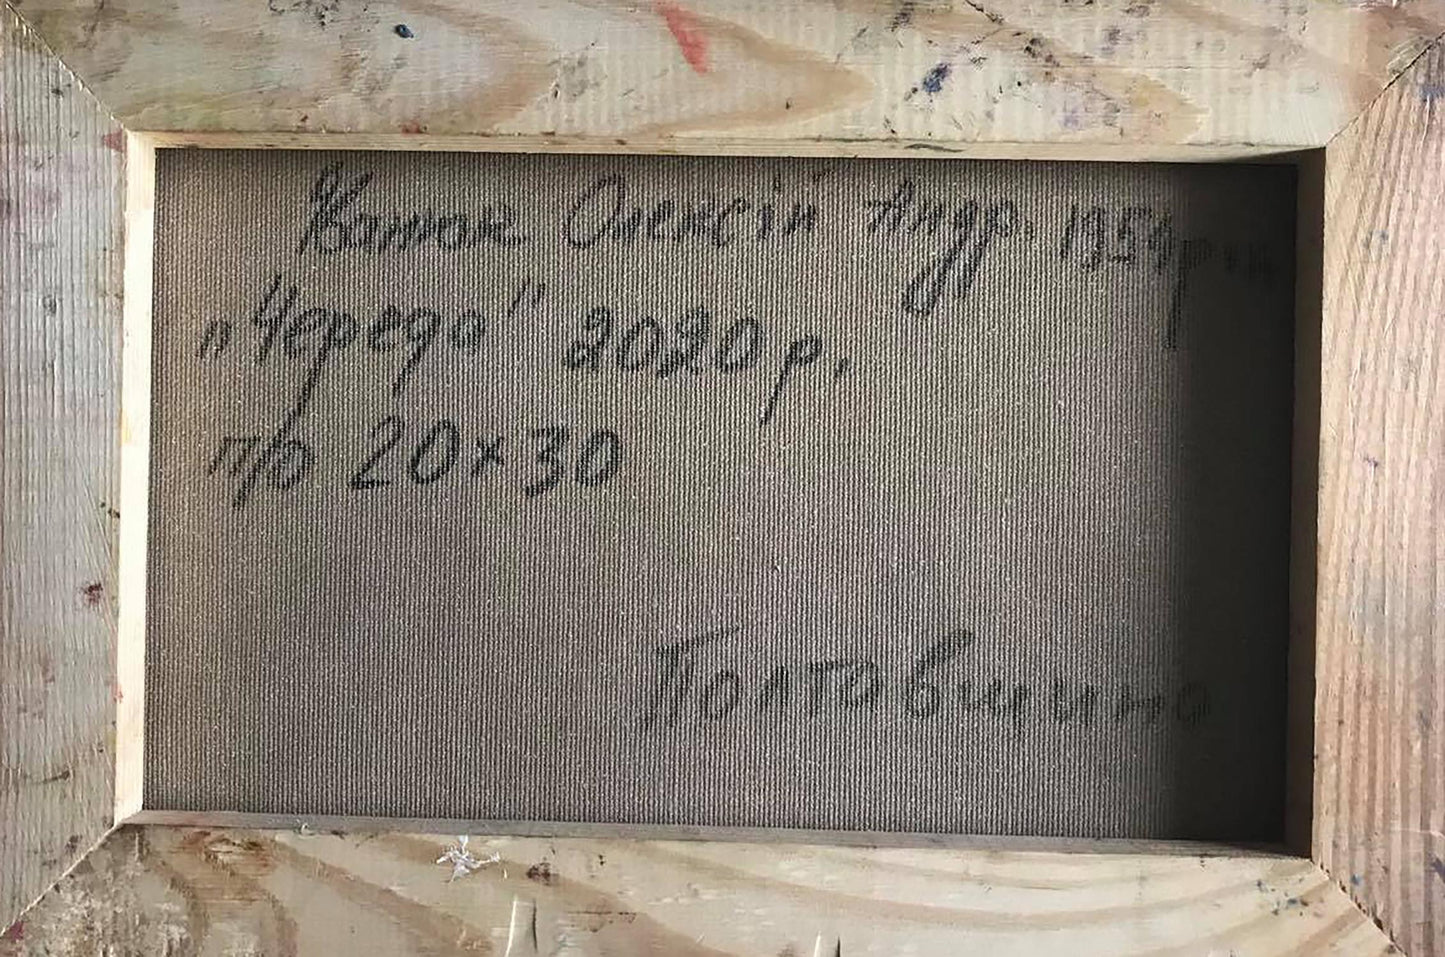 Олексій Андр. 1954 р.н.
„Череда" 2020 р.
п/о 20×30
Полтавщина